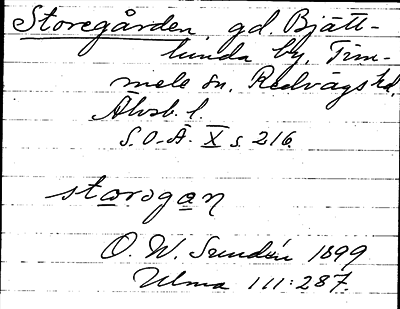 Storegården, gd. Bjätt-
lunda by, Tim-
mele sn, Redvägs hd,
Älvsb. l.
S.O.Ä. X s 216
storogan
O. W. Sundén 1899
Ulma 111:287.